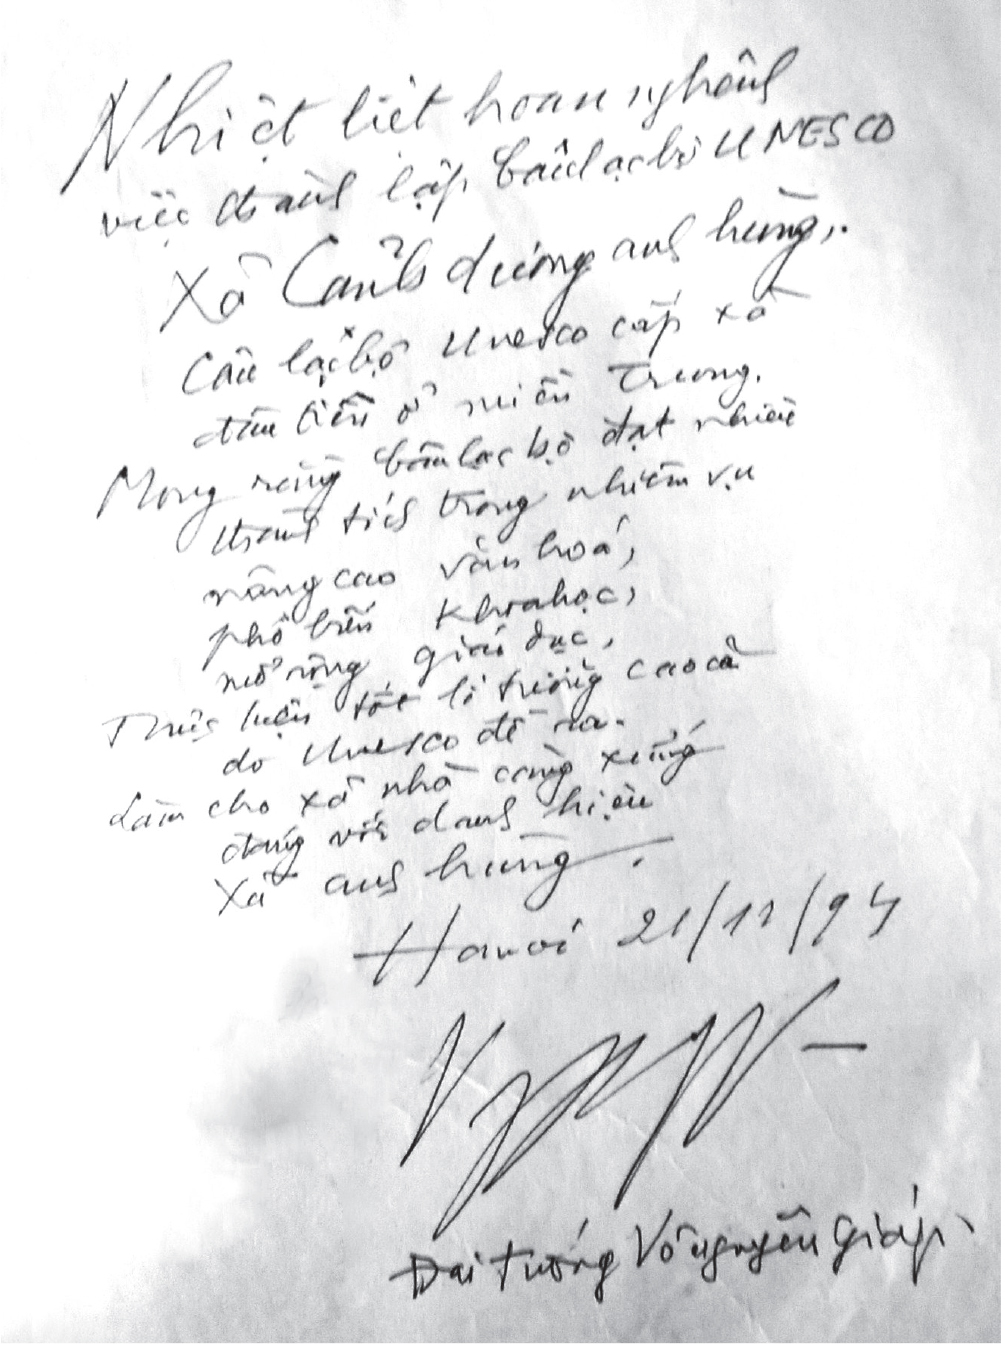 Nhiệt liệt hoan nghênh
việc thành lập Câu lạc bộ UNESCO
Xã Cảnh dương anh hùng,
Câu lạc bộ Unesco cấp xã
đầu tiên ở miền Trung.
Mong rằng Câu lạc bộ đạt nhiều
thành tích trong nhiệm vụ
nâng cao văn hoá,
phổ biến khoa học,
mở rộng giáo dục,
Thực hiện tốt lí tưởng cao cả
do Unesco đề ra.
Làm cho xã nhà càng xứng
đáng với danh hiệu
Xã anh hùng.
Hanoi 21/11/94
Đại tướng Võ nguyên Giáp